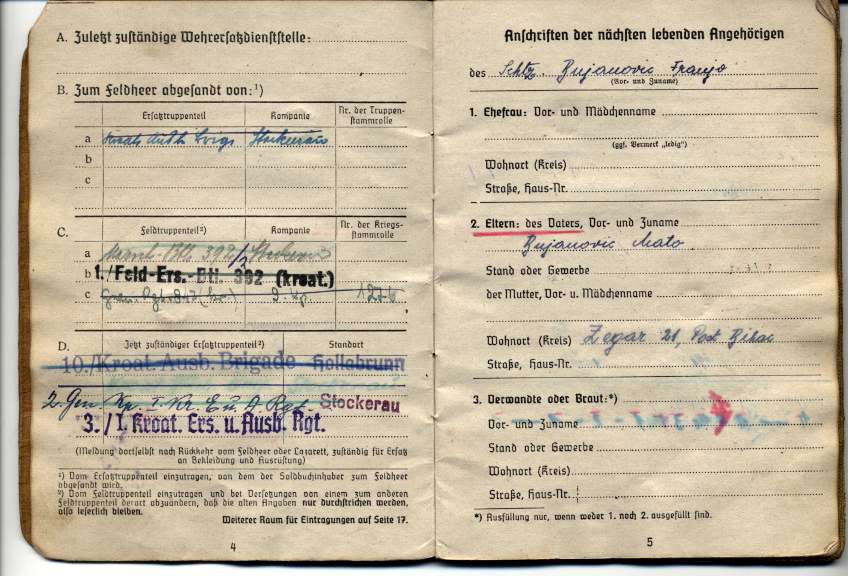 A. Zuletzt zuständige Wehrersatzdienststelle:
B. Zum Feldheer abgesandt von:¹)
Ersatztruppenteil Kompanie Nr. der Truppenstammrolle
a Stockerau
b
c
C. Feldtruppenteil²) Kompanie Nr. der Kriegsstammrolle
a Marsch Btl. 392/2 Stockerau
b 1./Feld-Ers.-Btl. 392 (kroat.)
c
D. Jetzt zuständiger Ersatztruppenteil²) Standort
10./Kroat. Ausb. Brigade Hollabrunn
2. Gen. Kp. I. Kr. E. u. A. Rgt. Stockerau
3./I. Kroat. Ers. u. Ausb. Rgt.
(Meldung dortselbst nach Rückkehr vom Feldheer oder Lazarett, zuständig für Ersatz
an Bekleidung und Ausrüstung)
¹) Vom Ersatztruppenteil einzutragen, von dem der Soldbuchinhaber zum Feldheer
abgesandt wird.
²) Vom Feldtruppenteil einzutragen und bei Versetzungen von einem zum anderen
Feldtruppenteil derart abzuändern, daß die alten Angaben nur durchstrichen werden,
also leserlich bleiben.
Weiterer Raum für Eintragungen auf Seite 17.
4
Anschriften der nächsten lebenden Angehörigen
des Schtz. Bujanovic Franjo
(Vor- und Zuname)
1. Ehefrau: Vor- und Mädchenname
(ggf. Vermerk „ledig")
Wohnort (Kreis)
Straße, Haus-Nr.
2. Eltern: des Vaters, Vor- und Zuname
Bujanovic Mato
Stand oder Gewerbe
der Mutter, Vor- u. Mädchenname
Wohnort (Kreis) Zegar 21, Post Bihac
Straße, Haus-Nr.
3. Verwandte oder Braut:*)
Vor- und Zuname
Stand oder Gewerbe
Wohnort (Kreis)
Straße, Haus-Nr.
*) Ausfüllung nur, wenn weder 1. noch 2. ausgefüllt sind.
5